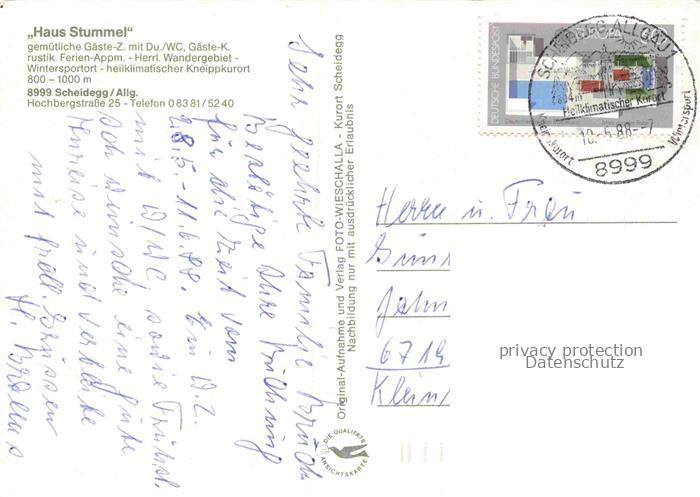 „Haus Stummel"
gemütliche Gäste-Z. mit Du./WC, Gäste-K.
rustik. Ferien-Appm. - Herrl. Wandergebiet -
Wintersportort - heilklimatischer Kneippkurort
800 – 1000 m
8999 Scheidegg / Allg.
Hochbergstraße 25 - Telefon 0 83 81 / 52 40
Sehr geehrte Familie
Bestätige Ihre Buchung
für die Zeit vom
28.5.-11.6.88. Ein D.Z.
mit D/WC, sowie Frühst.
Ich wünsche eine gute
Anreise und verbleibe
mit frdl. Grüssen
Original-Aufnahme und Verlag FOTO-WIESCHALLA - Kurort Scheidegg
Nachbildung nur mit ausdrücklicher Erlaubnis
DIE QUALITÄTS
ANSICHTSKARTE
DEUTSCHE BUNDESPOST
SCHEIDEGG, ALLGÄU 1
Heilklimatischer Kurort
Kneippkurort
Wintersport
-7
8999
Herrn u. Frau
Jahn
6719
Klein
privacy protection
Datenschutz